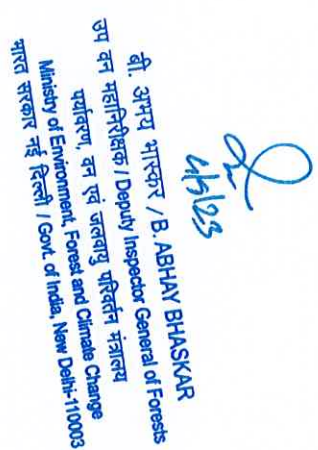 4/5/23
बी. अभय भास्कर / B. ABHAY BHASKAR
उप वन महानिरीक्षक / Deputy Inspector General of Forests
पर्यावरण, वन एवं जलवायु परिवर्तन मंत्रालय
Ministry of Environment, Forest and Climate Change
भारत सरकार नई दिल्ली / Govt. of India, New Delhi-110003